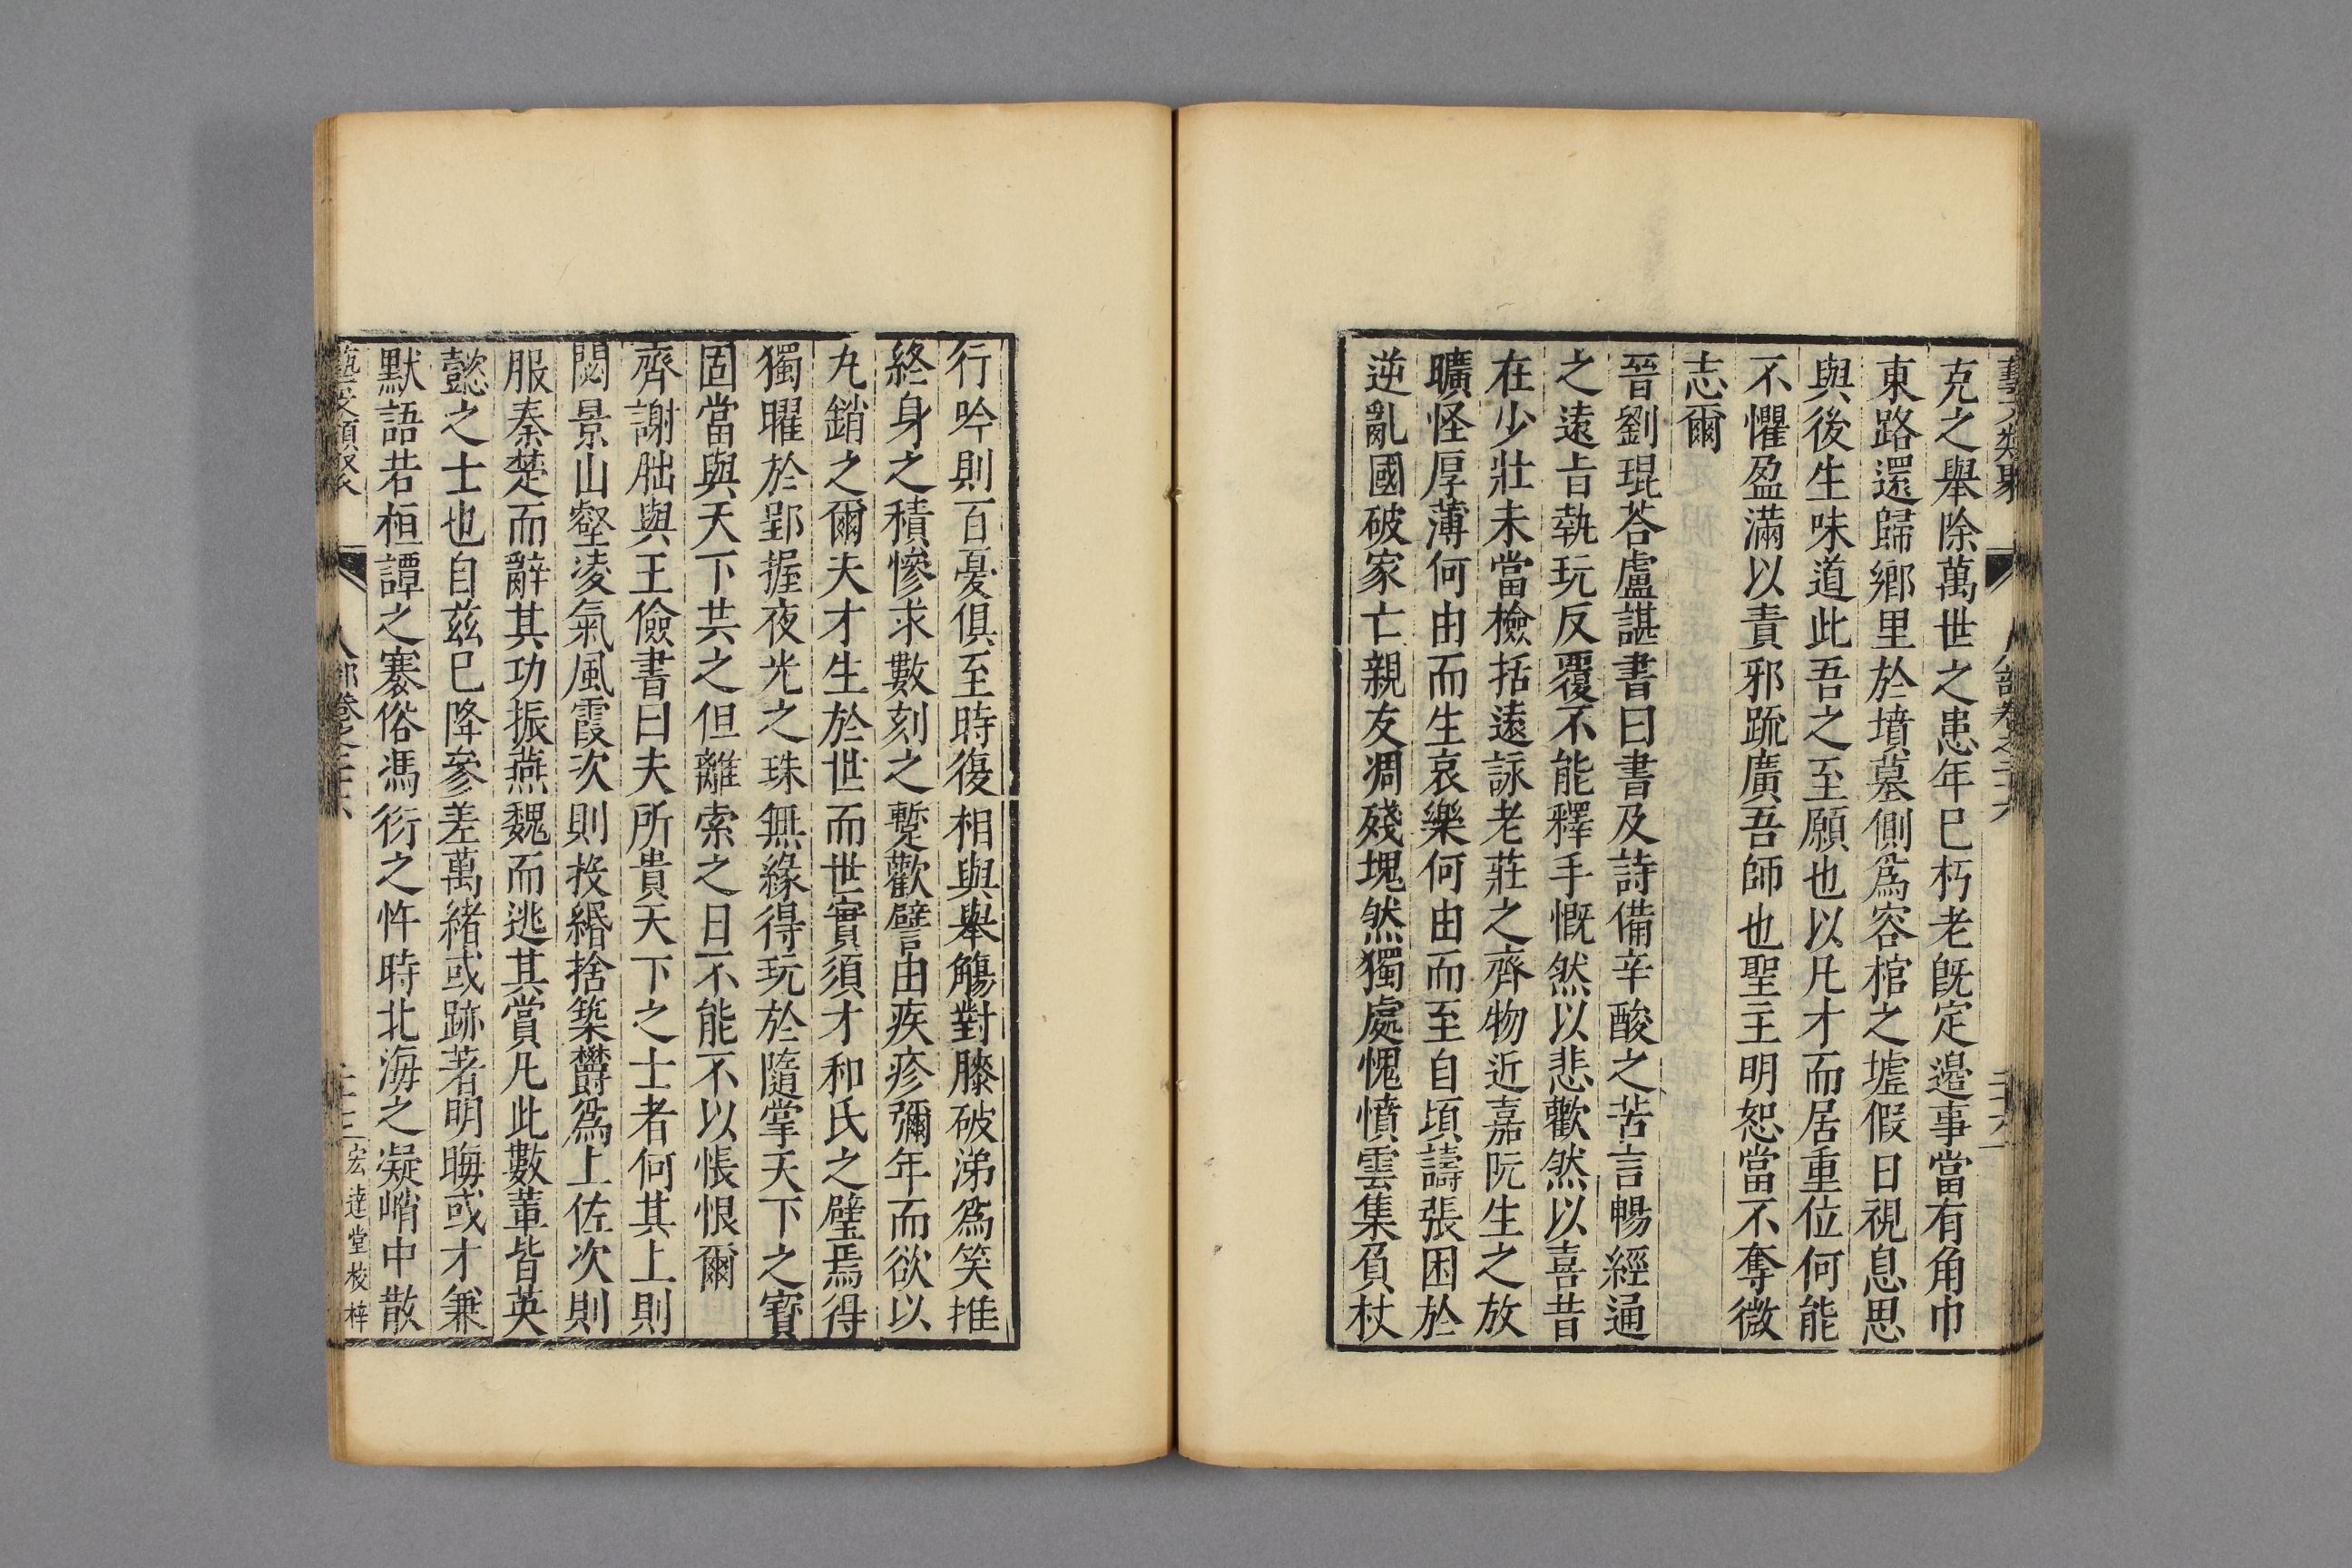 克之舉除萬世之患年巳朽老旣定邉事當有角巾
東路還歸鄉里於墳墓側爲容棺之墟假日視息思
與後生味道此吾之至願也以凡才而居重位何能
不懼盈滿以責邪䟽廣吾師也聖主明恕當不奪微
志爾
晉劉琨荅盧諶書曰書及詩備辛酸之苦言暢經通
之遠㫖執玩反覆不能釋手慨然以悲歡然以喜昔
在少壯未當檢括遠詠老莊之齊物近嘉阮生之放
曠怪厚薄何由而生哀樂何由而至自頃譸張困於
逆亂國破家亡親友凋殘塊然獨處愧憤雲集負杖
行吟則百憂俱至時復相與舉觴對膝破涕爲笑推
終身之積慘求數刻之蹔歡譬由疾疹彌年而欲以
九銷之爾夫才生於世而世實須才和氏之璧焉得
獨曜於郢握夜光之珠無緣得玩於隨掌天下之寶
固當與天下共之但離索之日不能不以悵恨爾
齊謝朏與王儉書曰夫所貴天下之士者何其上則
閟景山壑凌氣風霞次則投緡捨築欝爲上佐次則
服秦楚而辭其功振燕魏而逃其賞凡此數輩皆英
懿之士也自茲巳降參差萬緒或跡著明晦或才兼
默語若桓譚之褰俗馮衍之忤時北海之凝峭中散
宏達堂校梓